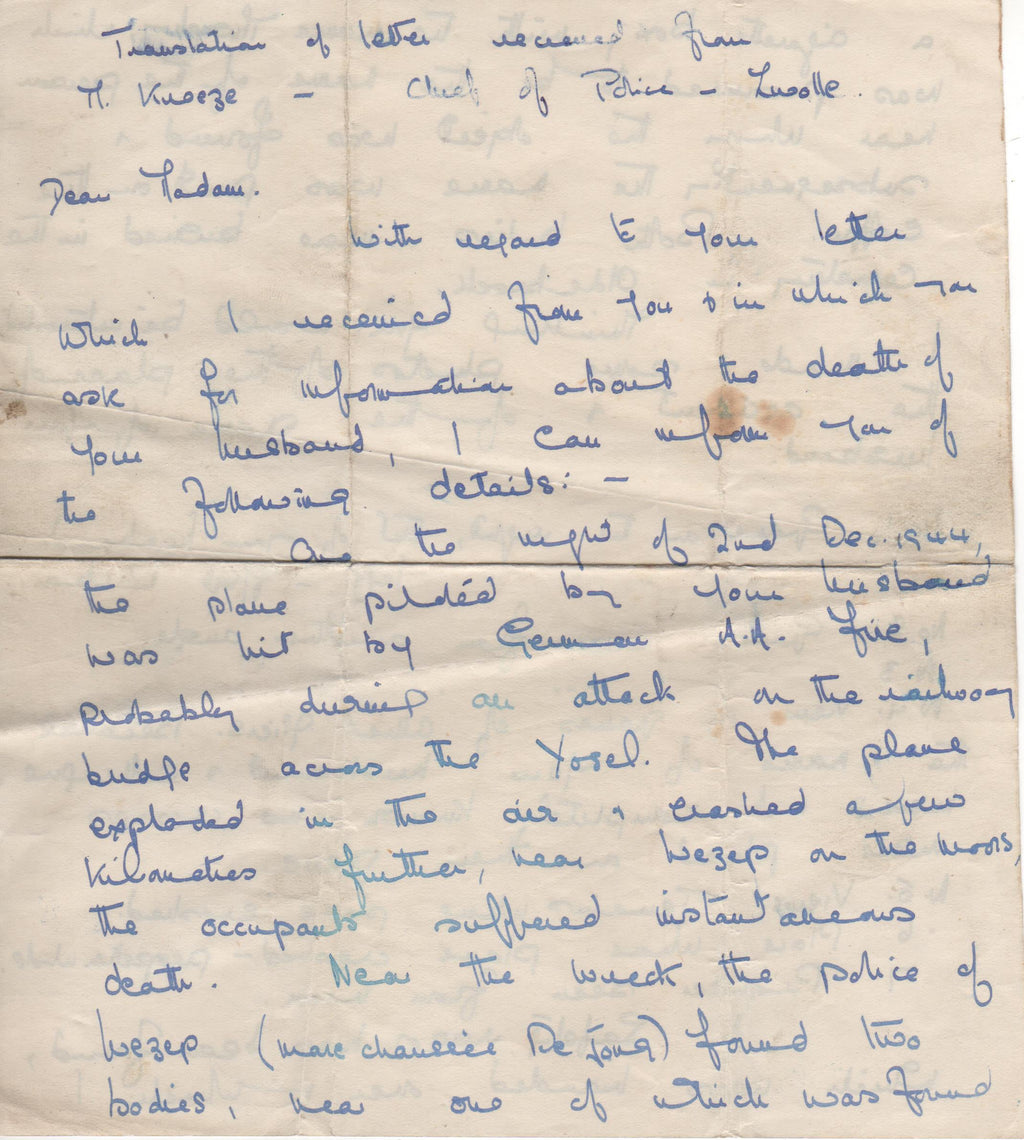 Translation of letter received from
M. Knoeze - Chief of Police - Zwolle.
Dear Madam.
With regard to your letter
which I received from you & in which you
ask for information about the death of
your husband, I can inform you of
the following details: -
On the night of 2nd Dec. 1944,
the plane piloted by your husband
was hit by German A.A. fire,
probably during an attack on the railway
bridge across the Yssel. The plane
exploded in the air & crashed a few
kilometres further, near Wezep on the moors,
the occupants suffered instantaneous
death. Near the wreck, the police of
Wezep (marechaussee De Jong) found two
bodies, near one of which was found